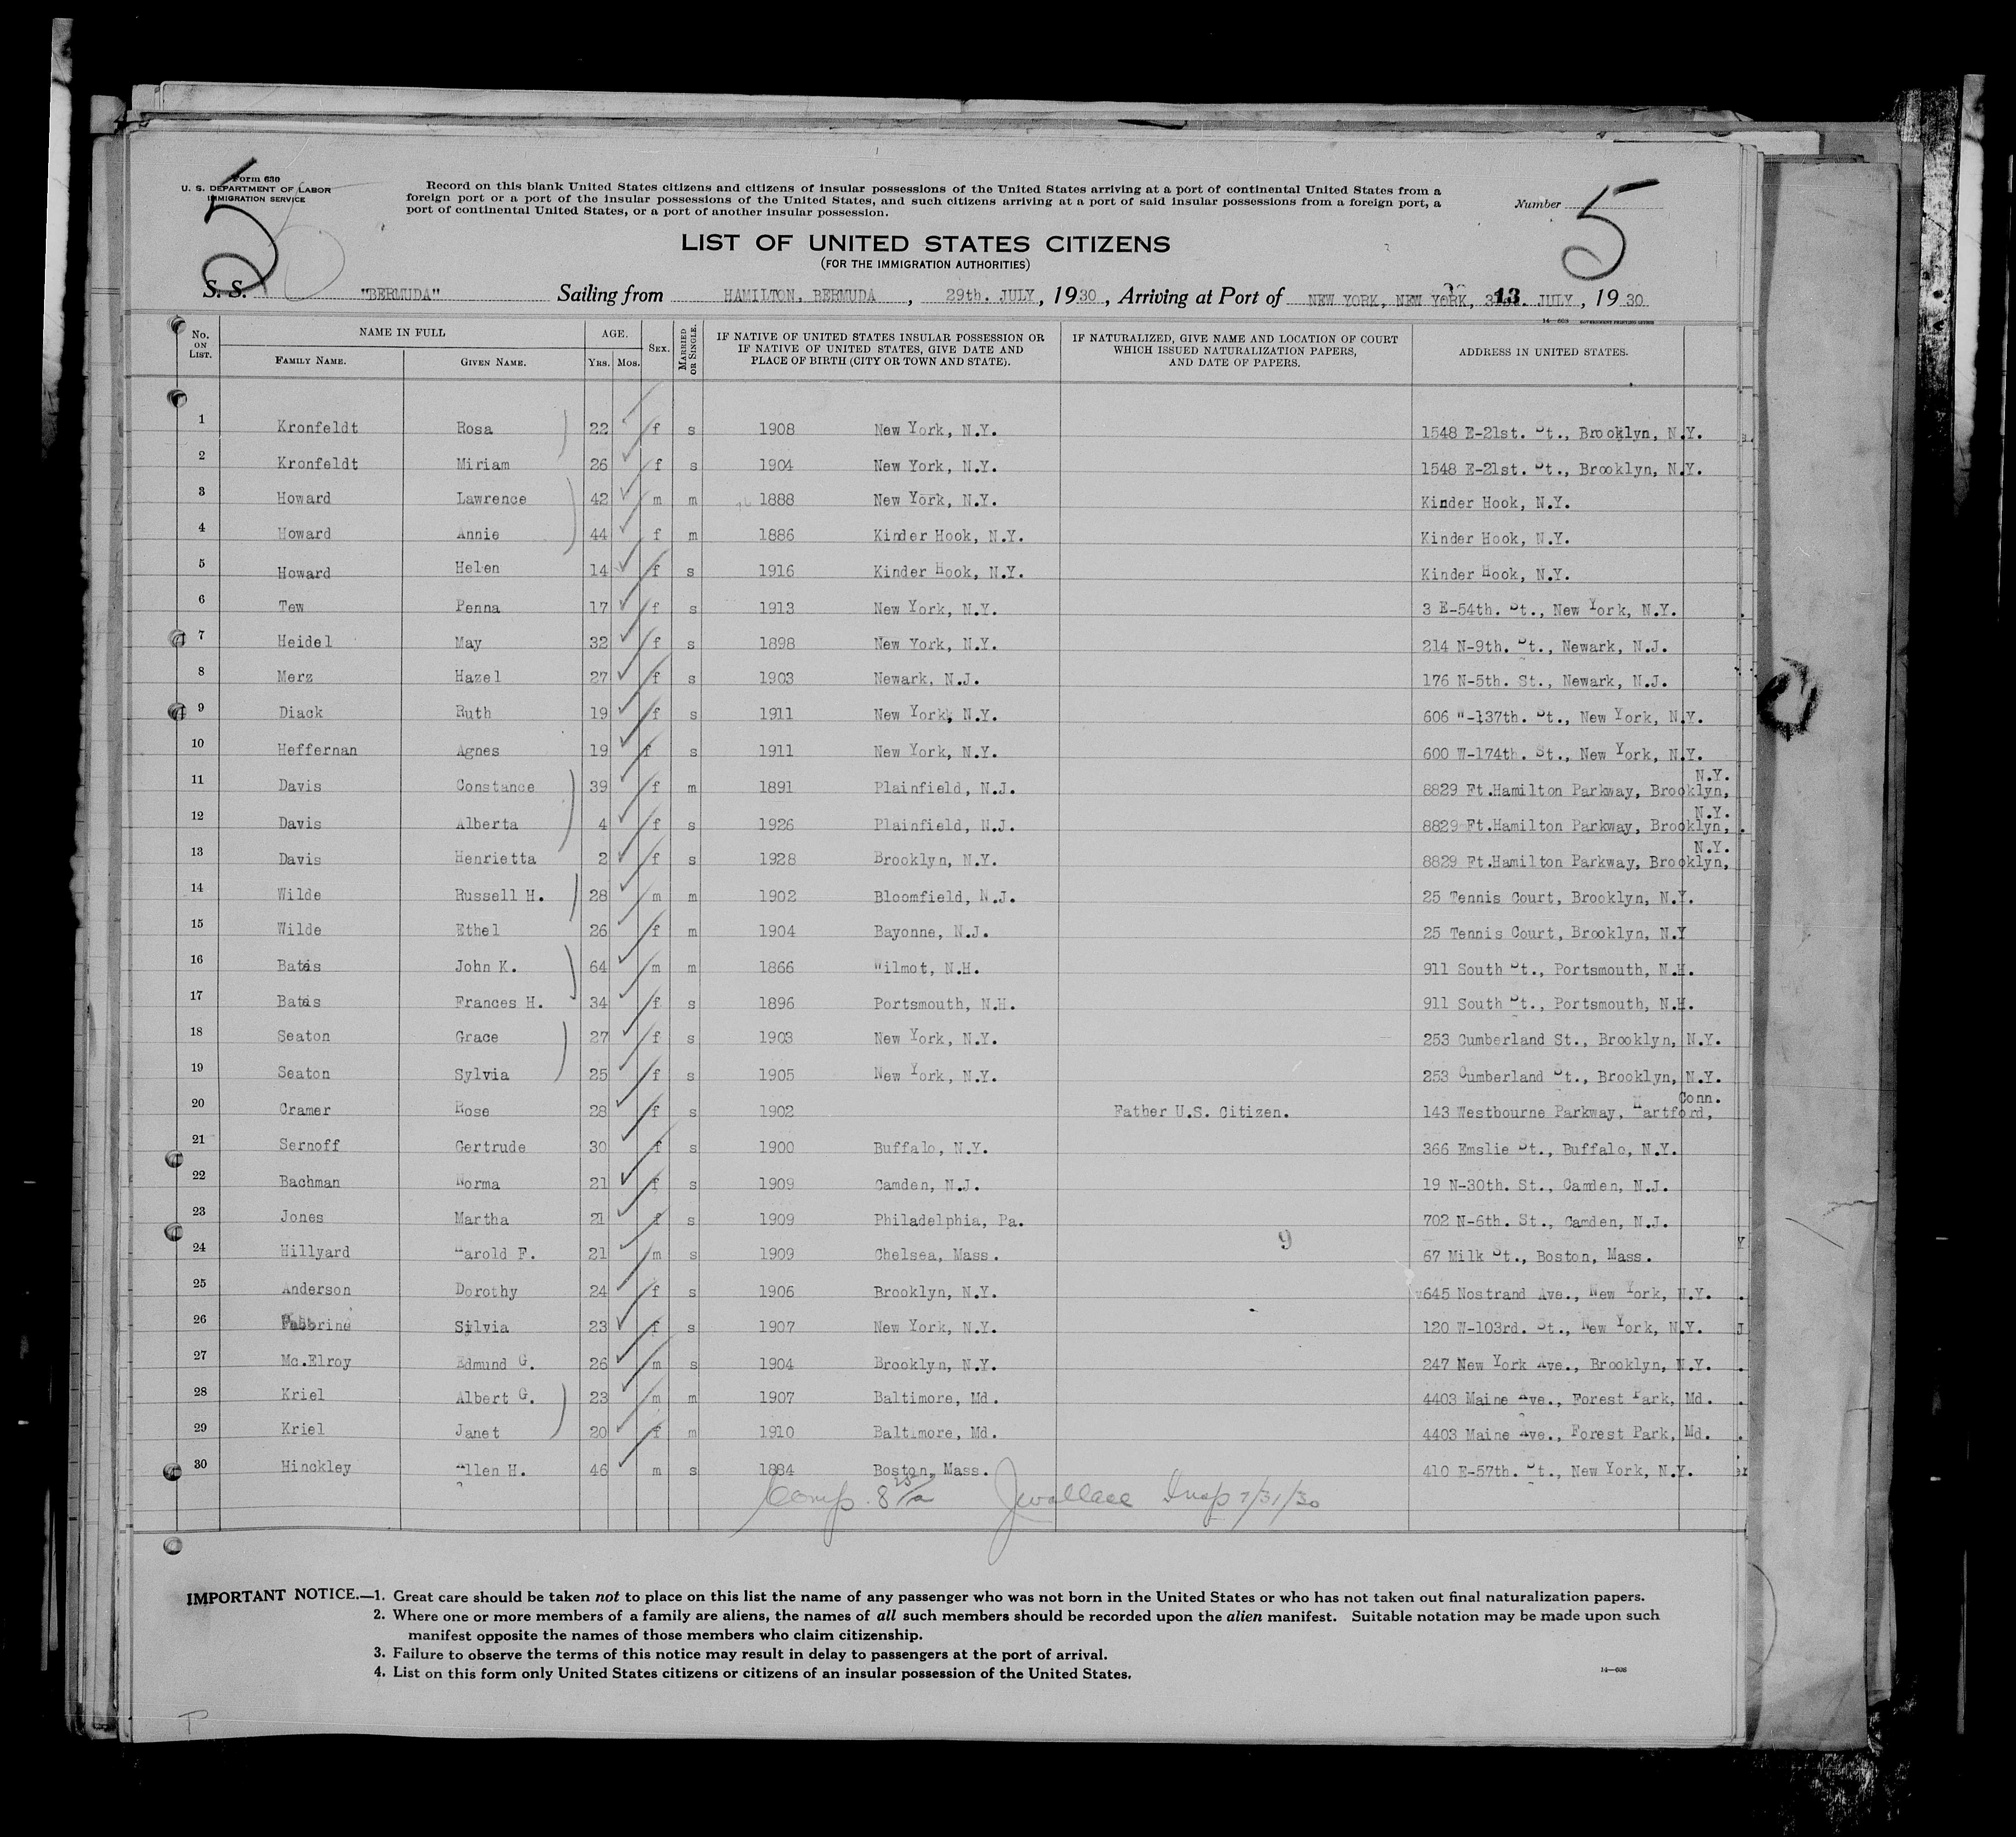 Form 630
U. S. DEPARTMENT OF LABOR
IMMIGRATION SERVICE
5
Record on this blank United States citizens and citizens of insular possessions of the United States arriving at a port of continental United States from a
foreign port or a port of the insular possessions of the United States, and such citizens arriving at a port of said insular possessions from a foreign port, a
port of continental United States, or a port of another insular possession.
Number 5
LIST OF UNITED STATES CITIZENS
(FOR THE IMMIGRATION AUTHORITIES)
S. S. "BERMUDA" Sailing from HAMILTON, BERMUDA, 29th. JULY, 1930, Arriving at Port of NEW YORK, NEW YORK, JULY, 19 30
14-608 GOVERNMENT PRINTING OFFICE
No. ON LIST. NAME IN FULL FAMILY NAME. GIVEN NAME. AGE. YRS. MOS. SEX. MARRIED OR SINGLE. IF NATIVE OF UNITED STATES INSULAR POSSESSION OR IF NATIVE OF UNITED STATES, GIVE DATE AND PLACE OF BIRTH (CITY OR TOWN AND STATE). IF NATURALIZED, GIVE NAME AND LOCATION OF COURT WHICH ISSUED NATURALIZATION PAPERS, AND DATE OF PAPERS. ADDRESS IN UNITED STATES.
1 Kronfeldt Rosa 22 f s 1908 New York, N.Y. 1548 E-21st. St., Brooklyn, N.Y.
2 Kronfeldt Miriam 26 f s 1904 New York, N.Y. 1548 E-21st. St., Brooklyn, N.Y.
3 Howard Lawrence 42 m m 1888 New York, N.Y. Kinder Hook, N.Y.
4 Howard Annie 44 f m 1886 Kinder Hook, N.Y. Kinder Hook, N.Y.
5 Howard Helen 14 f s 1916 Kinder Hook, N.Y. Kinder Hook, N.Y.
6 Tew Penna 17 f s 1913 New York, N.Y. 3 E-54th. St., New York, N.Y.
7 Heidel May 32 f s 1898 New York, N.Y. 214 N-9th. St., Newark, N.J.
8 Merz Hazel 27 f s 1903 Newark, N.J. 176 N-5th. St., Newark, N.J.
9 Diack Ruth 19 f s 1911 New York, N.Y. 606 W-137th. St., New York, N.Y.
10 Heffernan Agnes 19 f s 1911 New York, N.Y. 600 W-174th. St., New York, N.Y.
11 Davis Constance 39 f m 1891 Plainfield, N.J. 8829 Ft.Hamilton Parkway, Brooklyn, N.Y.
12 Davis Alberta 4 f s 1926 Plainfield, N.J. 8829 Ft.Hamilton Parkway, Brooklyn, N.Y.
13 Davis Henrietta 2 f s 1928 Brooklyn, N.Y. 8829 Ft.Hamilton Parkway, Brooklyn, N.Y.
14 Wilde Russell H. 28 m m 1902 Bloomfield, N.J. 25 Tennis Court, Brooklyn, N.Y.
15 Wilde Ethel 26 f m 1904 Bayonne, N.J. 25 Tennis Court, Brooklyn, N.Y
16 John K. 64 m m 1866 Wilmot, N.H. 911 South St., Portsmouth, N.H.
17 Frances H. 34 f s 1896 Portsmouth, N.H. 911 South St., Portsmouth, N.H.
18 Seaton Grace 27 f s 1903 New York, N.Y. 253 Cumberland St., Brooklyn, N.Y.
19 Seaton Sylvia 25 f s 1905 New York, N.Y. 253 Cumberland St., Brooklyn, N.Y.
20 Cramer Rose 28 f s 1902 Father U.S. Citizen. 143 Westbourne Parkway, Hartford, Conn.
21 Sernoff Gertrude 30 f s 1900 Buffalo, N.Y. 366 Emslie St., Buffalo, N.Y.
22 Bachman Norma 21 f s 1909 Camden, N.J. 19 N-30th. St., Camden, N.J.
23 Jones Martha 21 f s 1909 Philadelphia, Pa. 702 N-6th. St., Camden, N.J.
24 Hillyard Harold F. 21 m s 1909 Chelsea, Mass. 9 67 Milk St., Boston, Mass.
25 Anderson Dorothy 24 f s 1906 Brooklyn, N.Y. 645 Nostrand Ave., New York, N.Y.
26 Silvia 23 f s 1907 New York, N.Y. 120 W-103rd. St., New York, N.Y.
27 Mc.Elroy Edmund G. 26 m s 1904 Brooklyn, N.Y. 247 New York Ave., Brooklyn, N.Y.
28 Kriel Albert G. 23 m m 1907 Baltimore, Md. 4403 Maine Ave., Forest Park, Md.
29 Kriel Janet 20 f m 1910 Baltimore, Md. 4403 Maine Ave., Forest Park, Md.
30 Hinckley Allen H. 46 m s 1884 Boston, Mass. 410 E-57th. St., New York, N.Y.
Comp. 8 25/a JWallace Insp 7/31/30
IMPORTANT NOTICE.—1. Great care should be taken not to place on this list the name of any passenger who was not born in the United States or who has not taken out final naturalization papers.
2. Where one or more members of a family are aliens, the names of all such members should be recorded upon the alien manifest. Suitable notation may be made upon such
manifest opposite the names of those members who claim citizenship.
3. Failure to observe the terms of this notice may result in delay to passengers at the port of arrival.
4. List on this form only United States citizens or citizens of an insular possession of the United States.
14—608